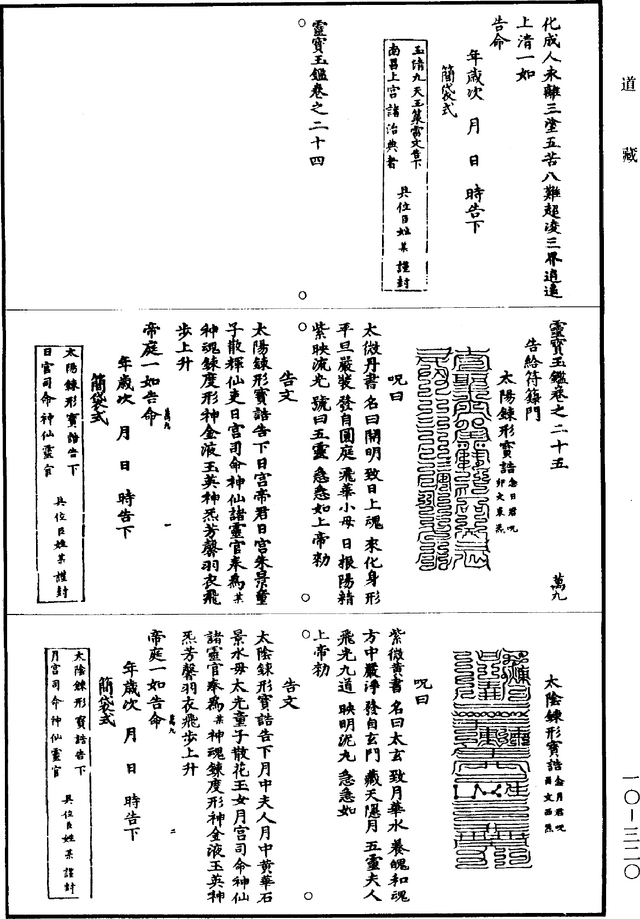 道藏
化成人永離三塗五苦八難超凌三界逍遙
上清一如
告命
年歲次 月 日 時告下
簡袋式
玉清九天玉篆雷文告下
南昌上宮諸治典者
具位臣姓某謹封
靈寶玉鑑卷之二十四
靈寶玉鑑卷之二十五
萬九
告給符籙門
太陽鍊形寶誥
念日君呪
印文東炁
呪曰
太微丹書 名曰開明 致日上魂 來化身形
平旦嚴裝 發自圓庭 飛華小母 日根陽精
紫映流光 號曰五靈 急急如上帝勑
告文
太陽鍊形寶誥告下日宮帝君日宮朱景童
子散輝仙吏日宮司命神仙諸靈官奉為某
神魂鍊度形神金液玉英神炁芳馨羽衣飛
步上升
帝庭一如告命
萬九
一
年歲次 月 日 時告下
簡袋式
太陽鍊形寶誥告下
日宮司命神仙靈官
具位臣姓某謹封
太陰鍊形寶誥
念月君呪
西炁
呪曰
紫微黃書 名曰太玄 致月華水 養魄和魂
方中嚴淨 發自玄門 藏天隱月 五靈夫人
飛光九道 映明泥丸 急急如
上帝勑
告文
太陰鍊形寶誥告下月中夫人月中黃華石
景水母太光童子散花玉女月宮司命神仙
諸靈官奉為某神魂鍊度形神金液玉英神
炁芳馨羽衣飛步上升
帝庭一如告命
萬九
二
年歲次 月 日 時告下
簡袋式
太陰鍊形寶誥告下
月宮司命神仙靈官
具位臣姓某謹封
一〇－三二〇